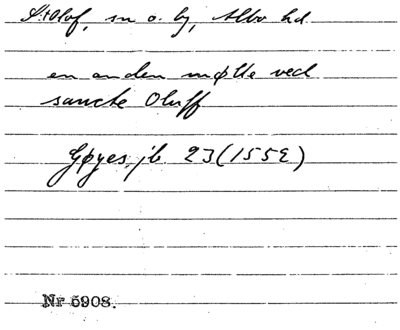 St. Olof, sn o. by, Albo hd
en anden mølle ved
sancte Oluff
Gøyes jb 23 (1552)
Nr 5908.